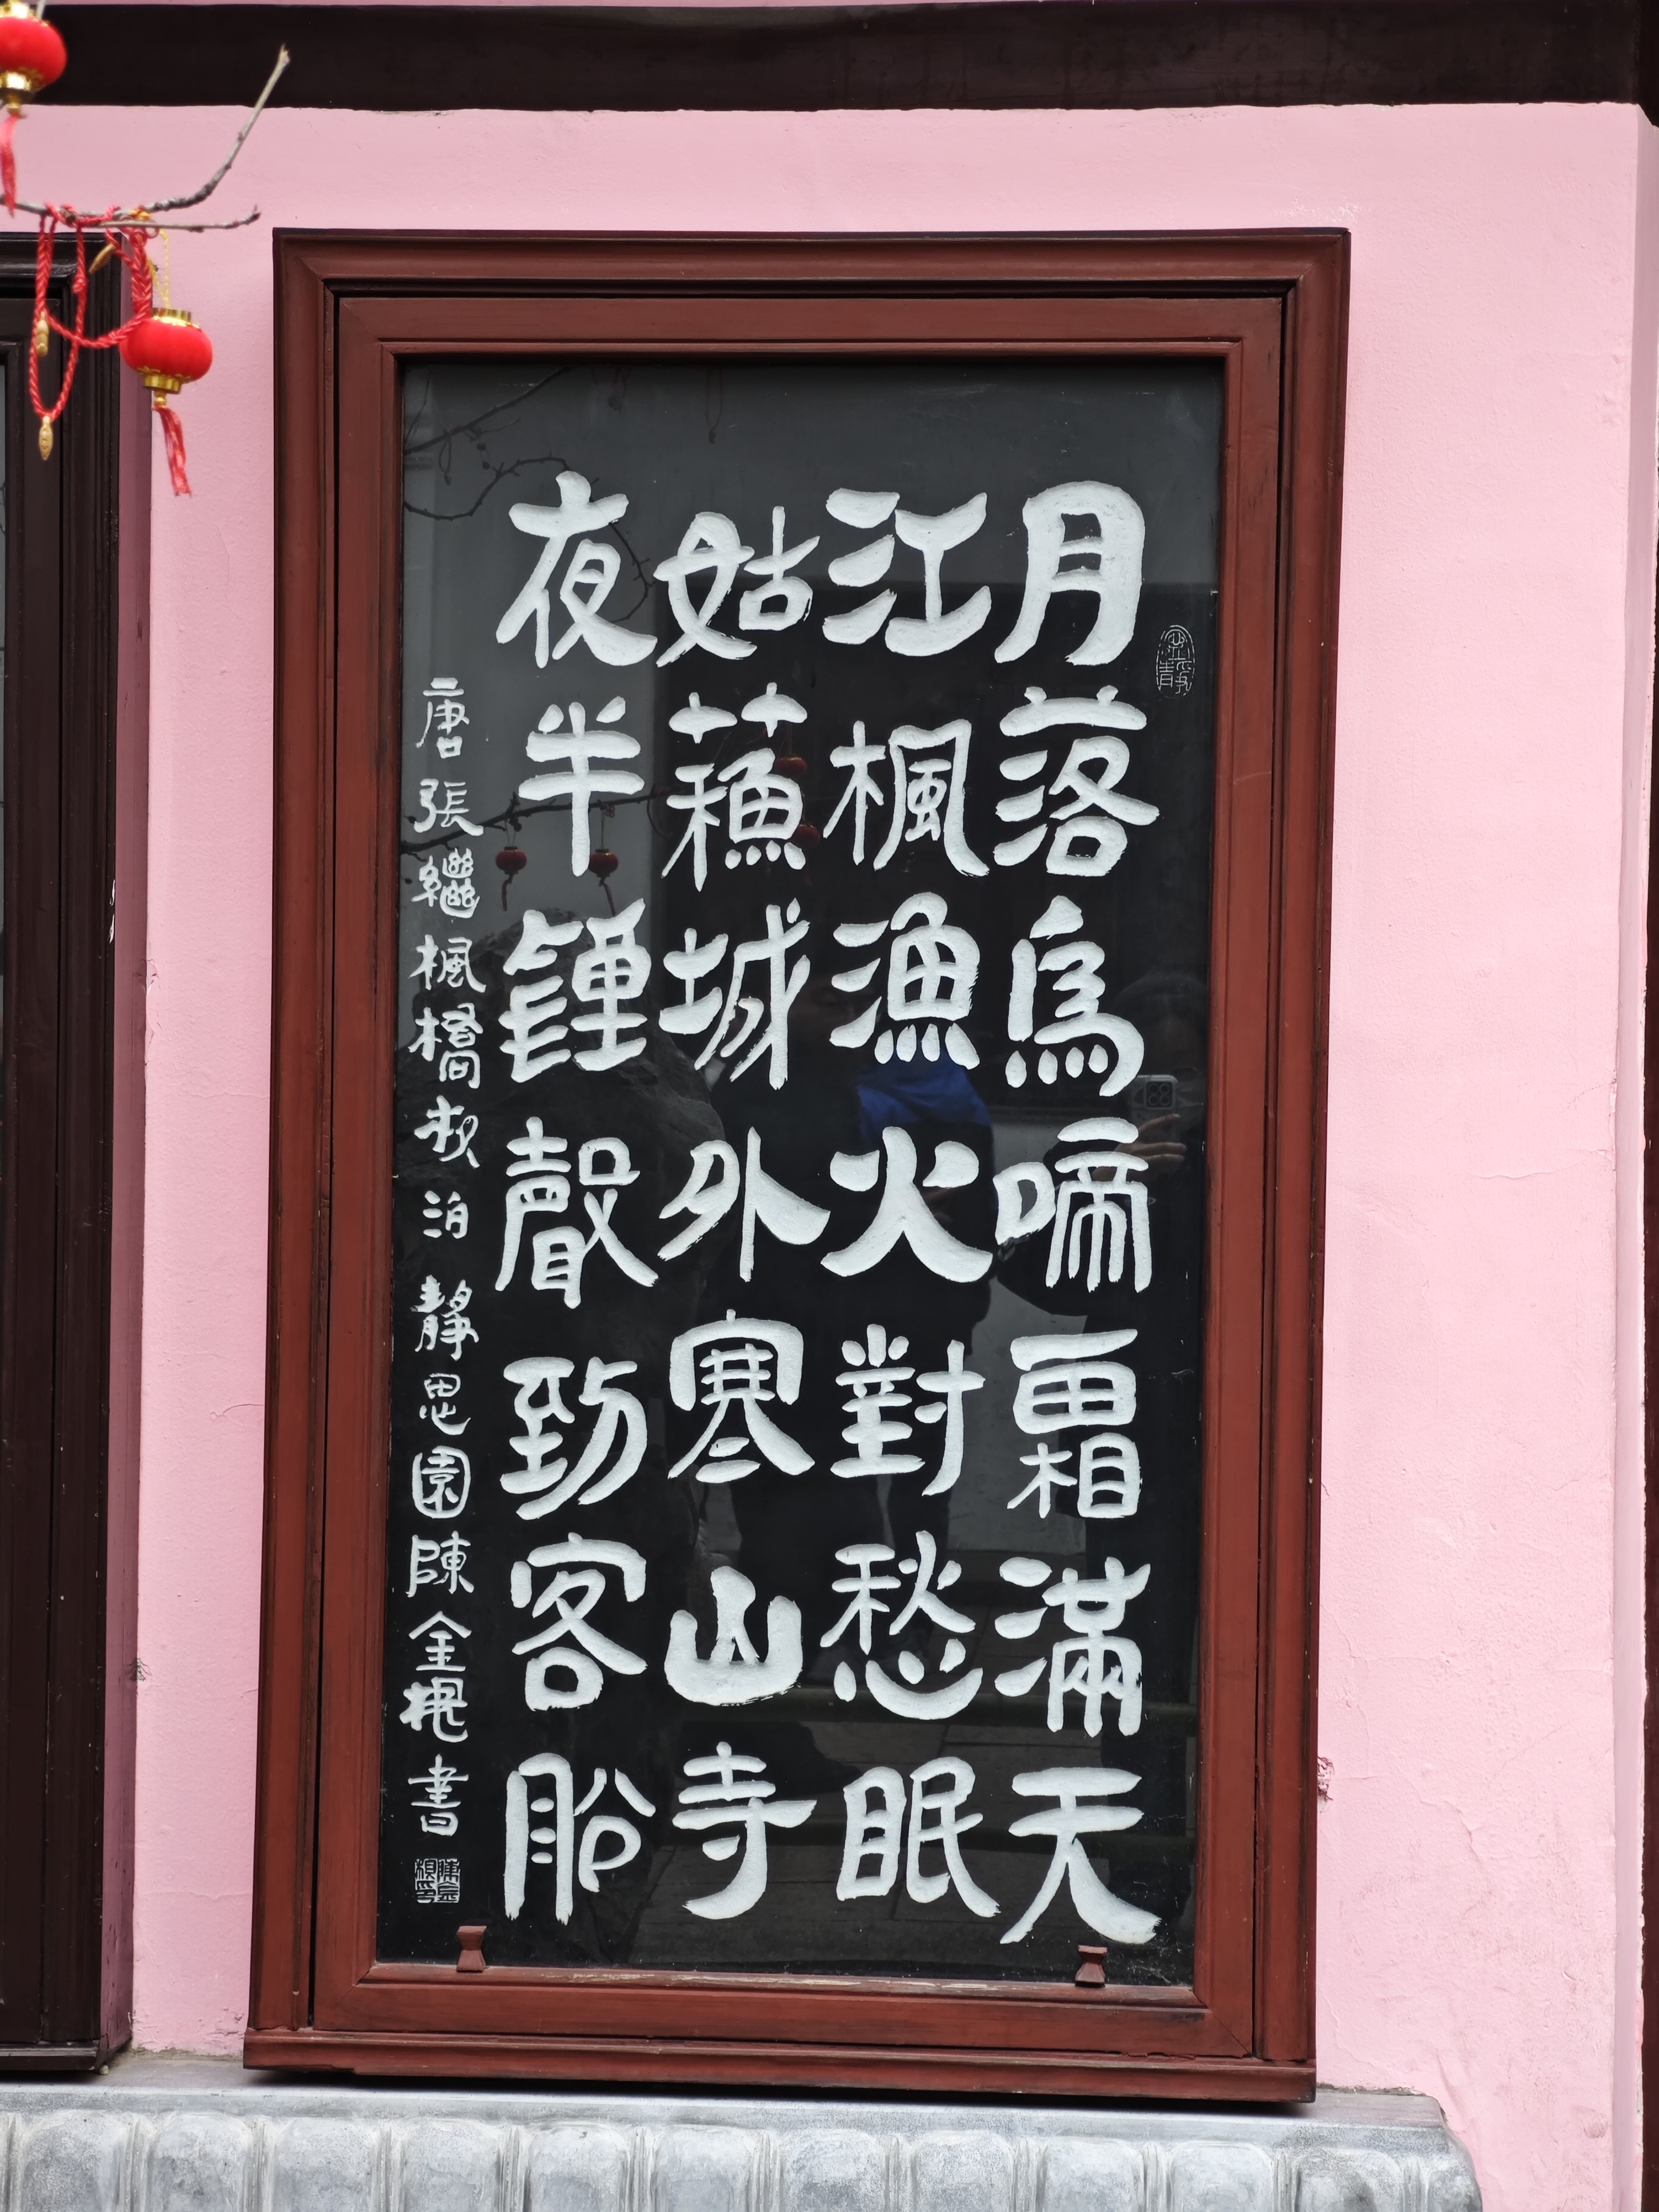 月落烏啼霜滿天
江楓漁火對愁眠
姑蘓城外寒山寺
夜半鍾聲到客船
唐張繼楓橋夜泊 靜思園陳金根書
陳金根印